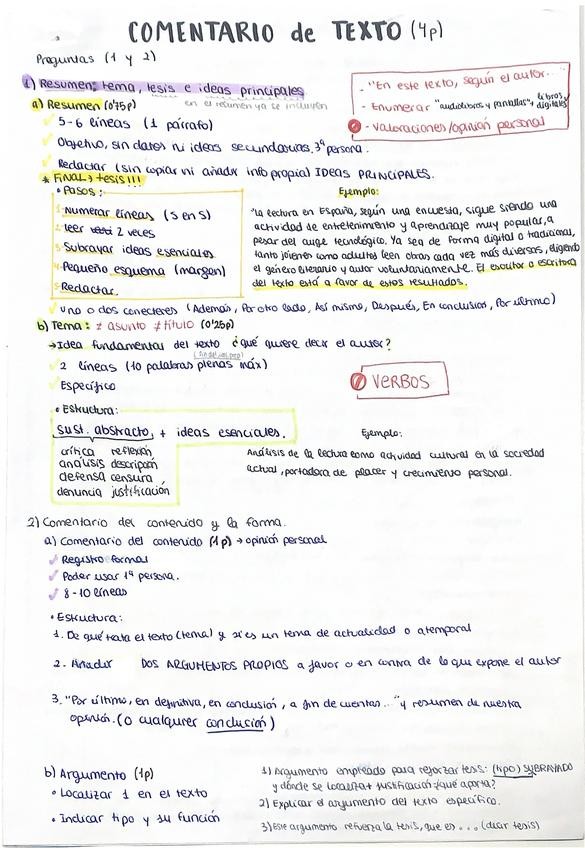 COMENTARIO de TEXTO (4p)
Preguntas (1 y 2)
1) Resumen: tema, tesis e ideas principales
en el resumen ya se incluyen
- "En este texto, según el autor...
- Enumerar "audiolibros y pantallas" + libros digitales
- valoraciones/opinión personal
a) Resumen (0'75p)
5-6 líneas (1 párrafo)
Objetivo, sin datos ni ideas secundarias, 3ª persona.
Redactar (sin copiar ni añadir info propia) IDEAS PRINCIPALES.
* FINAL → tesis!!!
• Pasos:
1. Numerar líneas (5 en 5)
2. leer 2 veces
3. Subrayar ideas esenciales
4. Pequeño esquema (margen)
5. Redactar.
Ejemplo:
"La lectura en España, según una encuesta, sigue siendo una
actividad de entretenimiento y aprendizaje muy popular, a
pesar del auge tecnológico. Ya sea de forma digital o tradicional,
tanto jóvenes como adultos leen obras cada vez más diversas, eligiendo
el género literario y autor voluntariamente. El escritor o escritora
del texto está a favor de estos resultados.
uno o dos conectores (Además, Por otro lado, Así mismo, Después, En conclusión, Por último)
b) Tema: ≠ asunto ≠ título (0'25p)
→ Idea fundamental del texto ¿qué quiere decir el autor?
2 líneas (10 palabras plenas máx)
Específico
VERBOS
• Estructura:
Sust. abstracto + ideas esenciales.
crítica reflexión
análisis descripción
defensa censura
denuncia justificación
Ejemplo:
Análisis de la lectura como actividad cultural en la sociedad
actual, portadora de placer y crecimiento personal.
2) Comentario del contenido y la forma.
a) Comentario del contenido (1p) → opinión personal
Registro formal
Poder usar 1ª persona.
8-10 líneas
• Estructura:
1. De qué trata el texto (tema) y si es un tema de actualidad o atemporal
2. Añadir DOS ARGUMENTOS PROPIOS a favor o en contra de lo que expone el autor
3. "Por último, en definitiva, en conclusión, a fin de cuentas..." y resumen de nuestra
opinión. (o cualquier conclusión)
b) Argumento (1p)
• Localizar 1 en el texto
• Indicar tipo y su función
1) Argumento empleado para reforzar tesis: (tipo) SUBRAYADO
y dónde se localiza + justificación ¿qué aporta?
2) Explicar el argumento del texto específico.
3) Este argumento refuerza la tesis, que es ... (decir tesis)